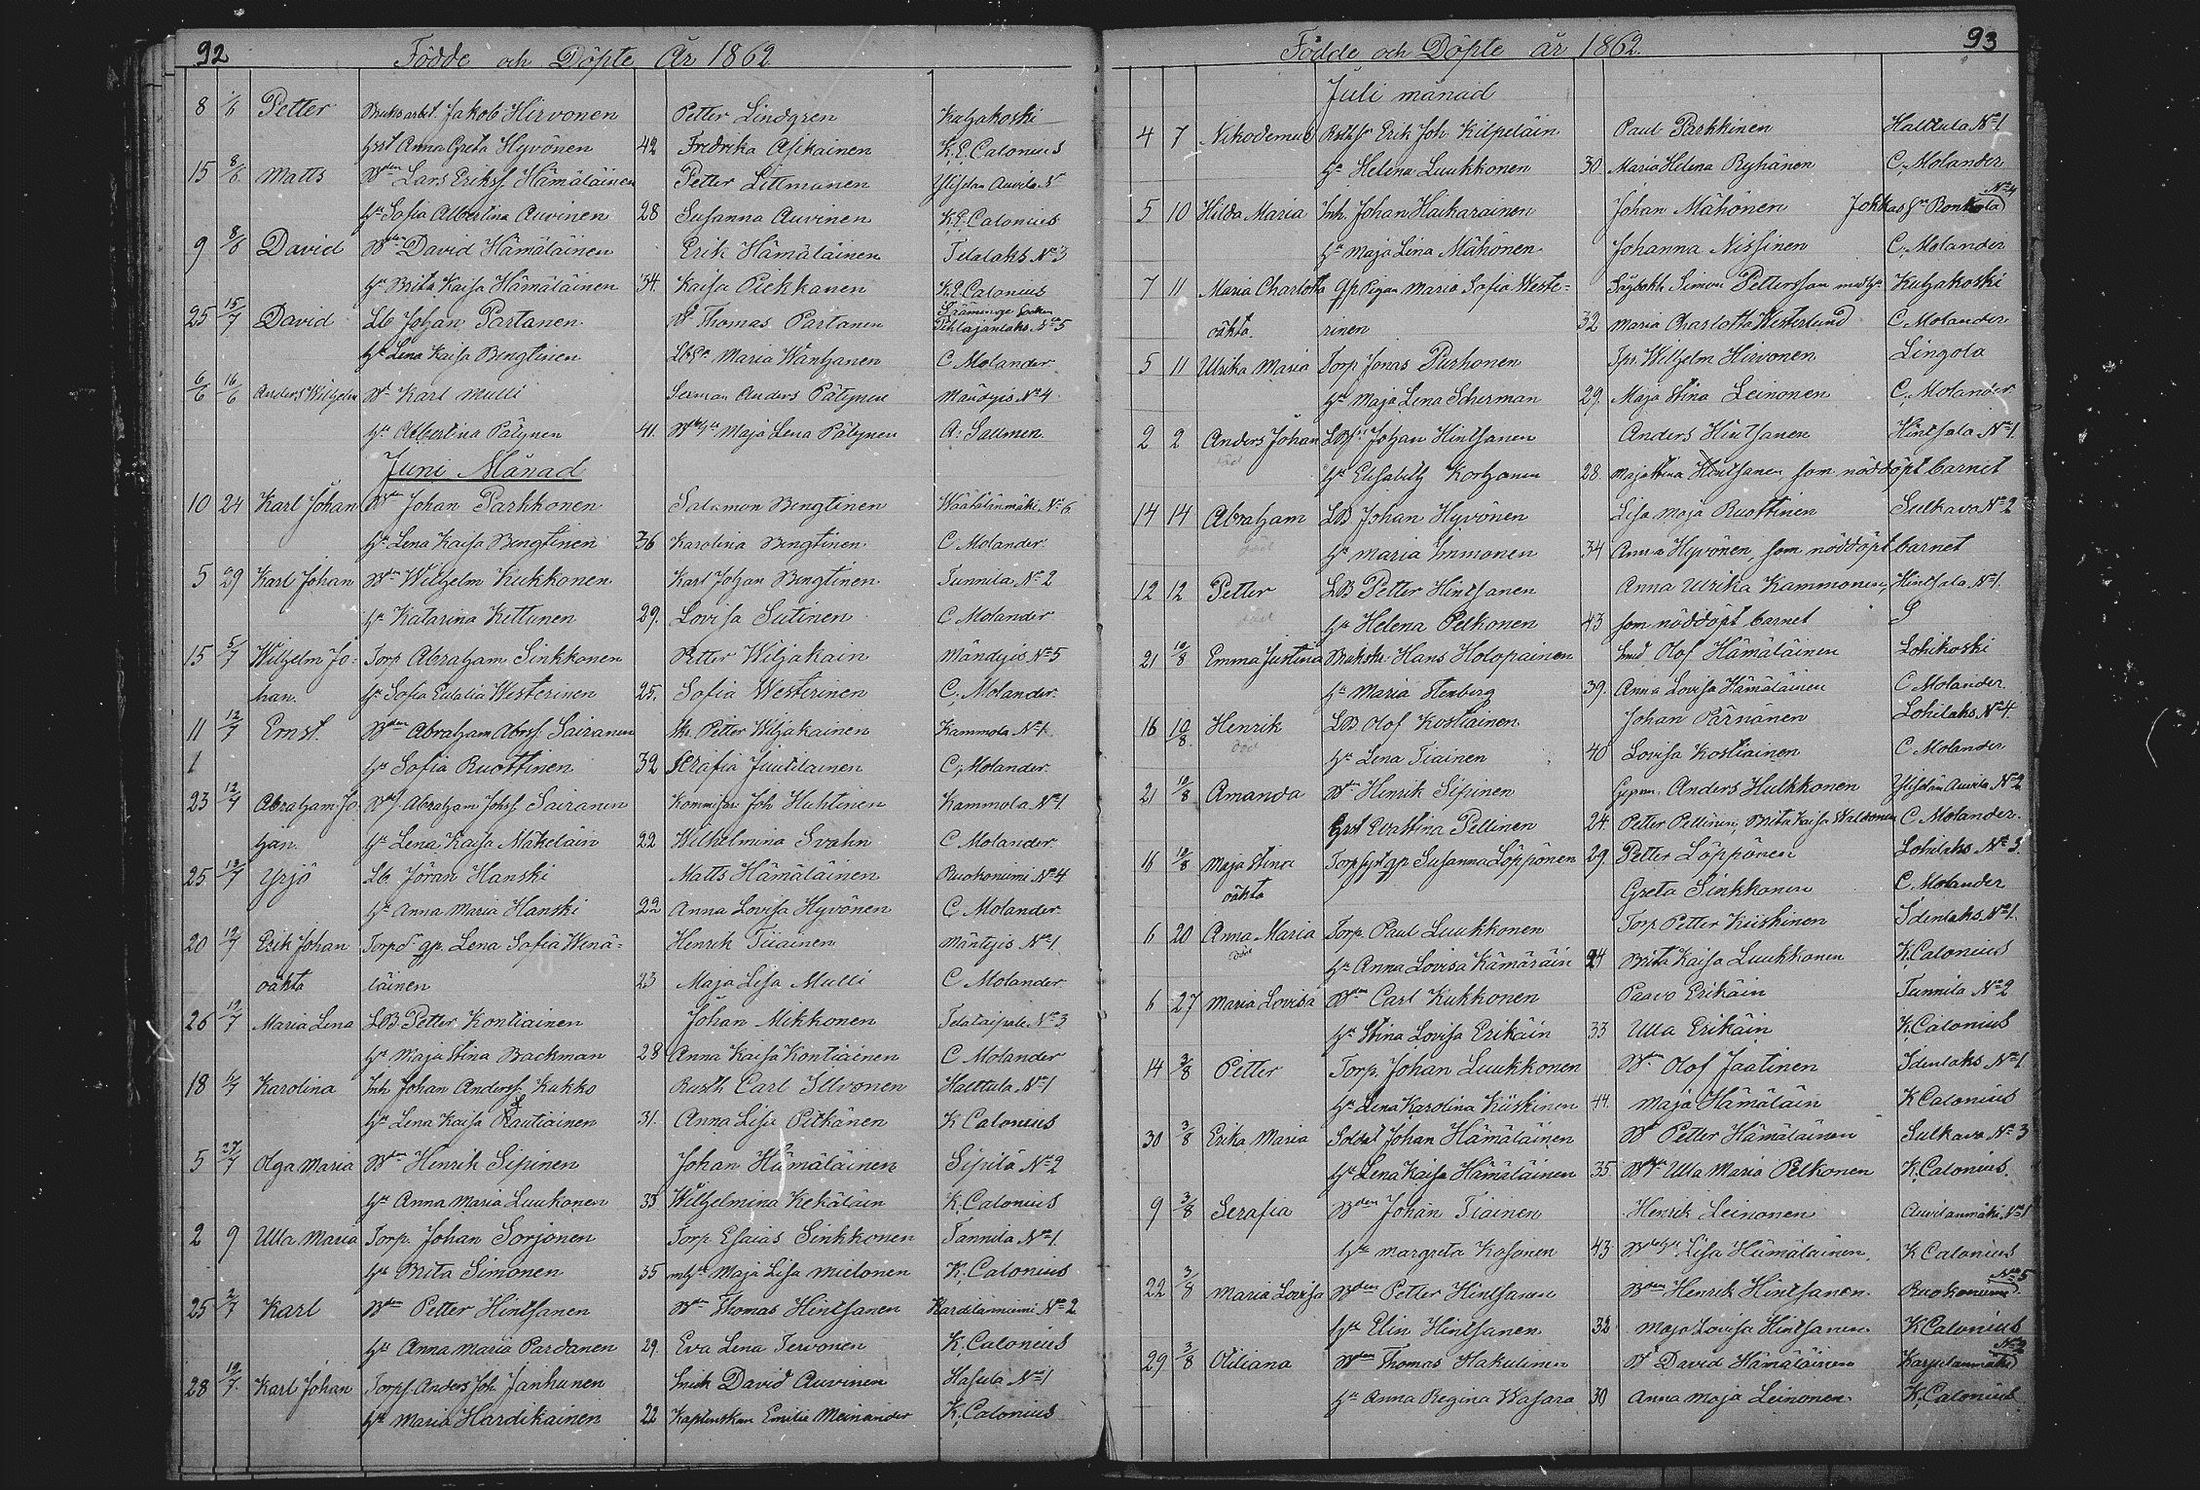 92
Födde och Döpte År 1862
8 1/6 Petter Bruksarbet. Jakob Hirvonen Petter Lindgren Kaljakoski
hust Anna Greta Hyvönen 42 Fredrika Asikainen K.E. Calonius
15 8/6 Matts Bden Lars Erikss. Hämäläinen Petter Littmanen Ylisen Auvila 5
hu Sofia Albertina Auvinen 28 Susanna Auvinen K.E. Calonius
9 8/6 David Bden David Hämäläinen Erik Hämäläinen Telalaks No 3
hu Brita Kaisa Hämäläinen 34. Kaisa Piekkanen K.E. Calonius
25 15/7 David Lb Johan Partanen Bd Thomas Partanen Säminge Socken Pihlajanlaks No 5
hu Lena Kaisa Bengtinen Lb hu Maria Wanhanen C Molander
6/6 16/6 Anders Wilhelm Bd Karl Mulli Serman Anders Pälynen Mändyis No 4
hu Albertina Pälynen 41. hu Maja Lena Pälynen A: Sallmen.
Juni Månad
10 24 Karl Johan Bden Johan Parkkonen Salamon Bengtinen Wäätälänmäki No 6
hu Lena Kaisa Bengtinen 36 Karolina Bengtinen C Molander.
5 29 Karl Johan Bden Wilhelm Kukkonen Karl Johan Bengtinen Tunnila No 2
hu Katarina Kettunen 29. Lovisa Sutinen C Molander
15 5/7 Wilhelm Jo- Torp Abraham Sinkkonen Petter Wiljakain Mändyis No 5
han. hu Sofia Eulalia Westerinen 25. Sofia Westerinen C. Molander.
11 12/7 Ernst. Bden Abraham Abrss. Sairanen Petter Wiljakainen Kammola No 1
1 hu Sofia Ruottinen 32 Serafia Juutilainen C. Molander.
23 12/7 Abraham Jo- Abraham Johss Sairanen Kommissar. Joh Huhtinen Kammola No 1.
han. hu Lena Kaisa Mäkeläin 22 Wilhelmina Svahn C Molander
25 13/7 Yrjö Lb. Jöran Hanski Matts Hämäläinen Ruokoniemi No 4
hu Anna Maria Hanski 22 Anna Lovisa Hyvönen C Molander.
20 19/7 Erik Johan Torp d gp. Lena Sofia Wenä- Henrik Tiainen Mäntyis No 1.
oäkta läinen 23 Maja Lisa Mulli C Molander
26 19/7 Maria Lena LB Petter Kontiainen Johan Mikkonen Telataipale No 3
hu Maja Stina Backman 28 Anna Kaisa Kontiainen C Molander
18 6/7 Karolina Inh Johan Anderss. Kukko Rusth Carl Illvonen Halttula No 1
hu Lena Kaisa Rautiainen 31. Anna Lisa Pitkänen K Calonius
5 27/7 Olga Maria Bden Henrik Sipinen Johan Hämäläinen Sipilä No 2
hu Anna Maria Luukonen 35 Wilhelmina Kekäläin K. Calonius
2 9 Ulla Maria Torp. Johan Sorjonen Torp Esaias Sinkkonen Tannila No 1
hu Brita Simonen 35 m hu Maja Lisa Mielonen K. Calonius
25 2/7 Karl Bden Petter Hintsanen Bden Thomas Hintsanen Karilanniemi No 2
hu Anna Maria Pardanen 29. Eva Lena Tervonen K. Calonius
28 19/7 Karl Johan Torps. Anders Joh Janhunen Smed David Auvinen Hasula No 1
hu Maria Hardikainen 22 Kaptenskan Emilia Meinander K. Calonius
93
Födde och Döpte år 1862.
Juli månad
4 7 Nikodemus Erik Joh Kilpeläin Paul Parkkinen Halttula No 1
hu Helena Luukkonen 30. Maria Helena Ryhänen C. Molander
5 10 Hilda Maria Inh. Johan Haikarainen Johan Mähönen Johkas Ronkola No 4
hu Maja Lina Mähönen Johanna Nissinen C. Molander
7 11 Maria Charlotta gp Pigan Maria Sofia Weste- Simon Pettersson med hu Kuljakoski
oäkta. rinen 32 Maria Charlotta Westerlund C Molander
5 11 Ulrika Maria Torp Jonas Purhonen Wilhelm Hirvonen Lingola
hu Maja Lena Scherman 29. Maja Stina Leinonen C. Molander
2 2 Anders Johan Johan Hintsanen Anders Hintsanen Hintsala No 1
död hu Elisabeth Korhonen 28. Maja Stina Hintsanen som nöddöpt barnet
14 14 Abraham LB Johan Hyvönen Lisa Maja Ruottinen Sulkava No 2
död hu Maria Immonen 34 Anna Hyvönen, som nöddöpt barnet
12 12 Petter LB Petter Hintsanen Anna Ulrika Kammonen, Hintsala No 1.
död hu Helena Pelkonen 43 som nöddöpt barnet
21 10/8 Emma Justina Hans Holopainen Smed Olof Hämäläinen Lohikoski
hu Maria Stenberg 39. Anna Lovisa Hämäläinen C Molander
16 10/8. Henrik LB Olof Kostiainen Johan Pärnänen Lohilaks No 4.
död hu Lena Tiainen 40 Lovisa Kostiainen C Molander
21 10/8 Amanda Bd Henrik Sipinen Anders Hulkkonen Ylisen Auvila No 2
hust Eva Stina Pellinen 24. Petter Pellinen, Brita Kaisa Walkonen C Molander.
11 10/8 Maja Stina Torp hyst gp Susanna Löppönen 29. Petter Löppönen Lohilaks No 3.
oäkta Greta Sinkkonen C. Molander
6 20 Anna Maria Torp Paul Luukkonen Torp Petter Kiiskinen Idenlaks No 1.
död hu Anna Lovisa Kämäräin 24 Brita Kaisa Luukkonen K. Calonius
6 27 Maria Lovisa Bden Carl Kukkonen Paavo Erikäin Tunnila No 2
hu Stina Lovisa Erikäin 33 Ulla Erikäin K. Calonius
14 3/8 Petter Torp. Johan Luukkonen Bden Olof Jaatinen Idenlaks No 1
hu Lena Karolina Kiiskinen 44. Maja Hämäläin K Calonius
30 3/8 Erika Maria Soldat Johan Hämäläinen Bd Petter Hämäläinen Sulkava No 3
hu Lena Kaisa Hämäläinen 35 Ulla Maria Pelkonen K. Calonius.
9 3/8 Serafia Bden Johan Tiainen Henrik Leinonen Auvilanmäki No 1
hu Margreta Kosonen 43 Lisa Hämäläinen. K Calonius
22 3/8 Maria Lovisa Bden Petter Hintsanen Bden Henrik Hintsanen. Ruokoniemi No 5
hu Elin Hintsanen 32 Maja Lovisa Hintsanen. K Calonius
29 3/8 Otiliana Bden Thomas Hakulinen Bd David Hämäläinen Karjulanmäki No 2
hu Anna Regina Wasara 30 Anna Maja Leinonen. K. Calonius.